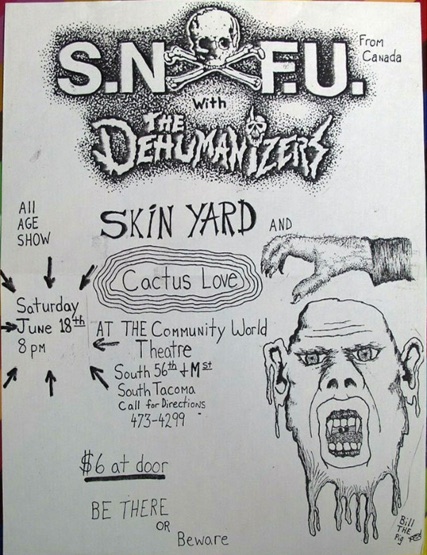 S.N F.U.
From
Canada
With
THE
DEHUMANIZERS
All
AGE
SHOW
SKIN YARD AND
Cactus Love
Saturday
June 18th
8 pm
AT THE Community World
Theatre
South 56th + M St
South Tacoma
Call for Directions
473-4299
$6 at door
BE THERE
OR
Beware
Bill
THE
Pig